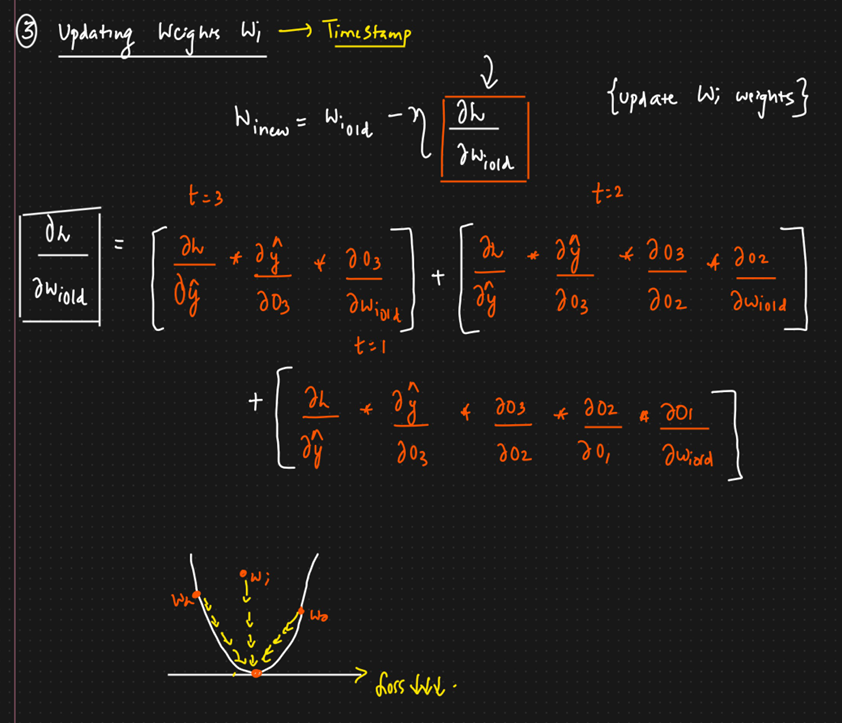 ③ Updating Weights Wi → Timestamp
Winew = Wiold - η ∂L/∂Wiold {Update Wi weights}
t=3 t=2
∂L/∂Wiold = [∂L/∂ŷ * ∂ŷ/∂O3 * ∂O3/∂Wiold] + [∂L/∂ŷ * ∂ŷ/∂O3 * ∂O3/∂O2 * ∂O2/∂Wiold]
t=1
+ [∂L/∂ŷ * ∂ŷ/∂O3 * ∂O3/∂O2 * ∂O2/∂O1 * ∂O1/∂Wiold]
Wi
Wh
Wo
Loss ↓↓↓.